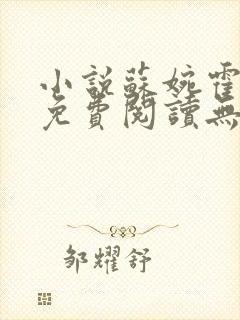 小说蘇婉霍
免費閱讀無
邹耀舒